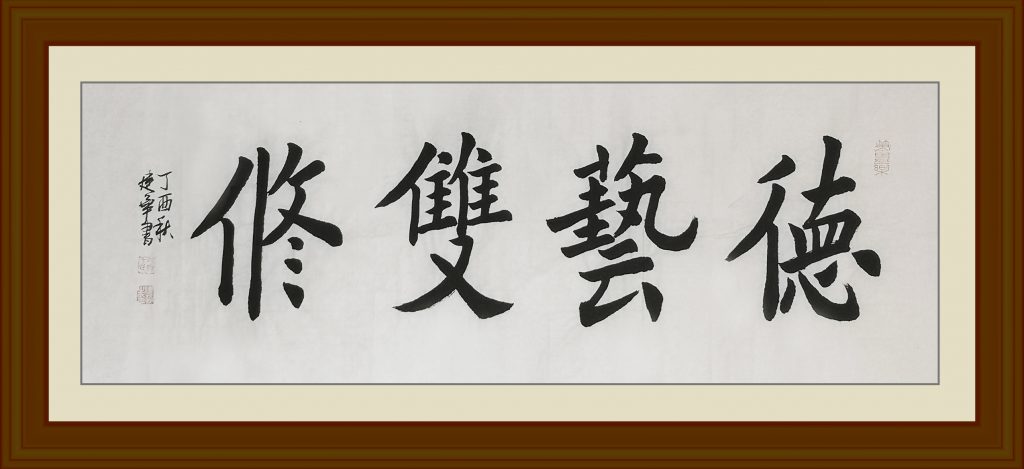 德藝雙修
丁酉秋
書